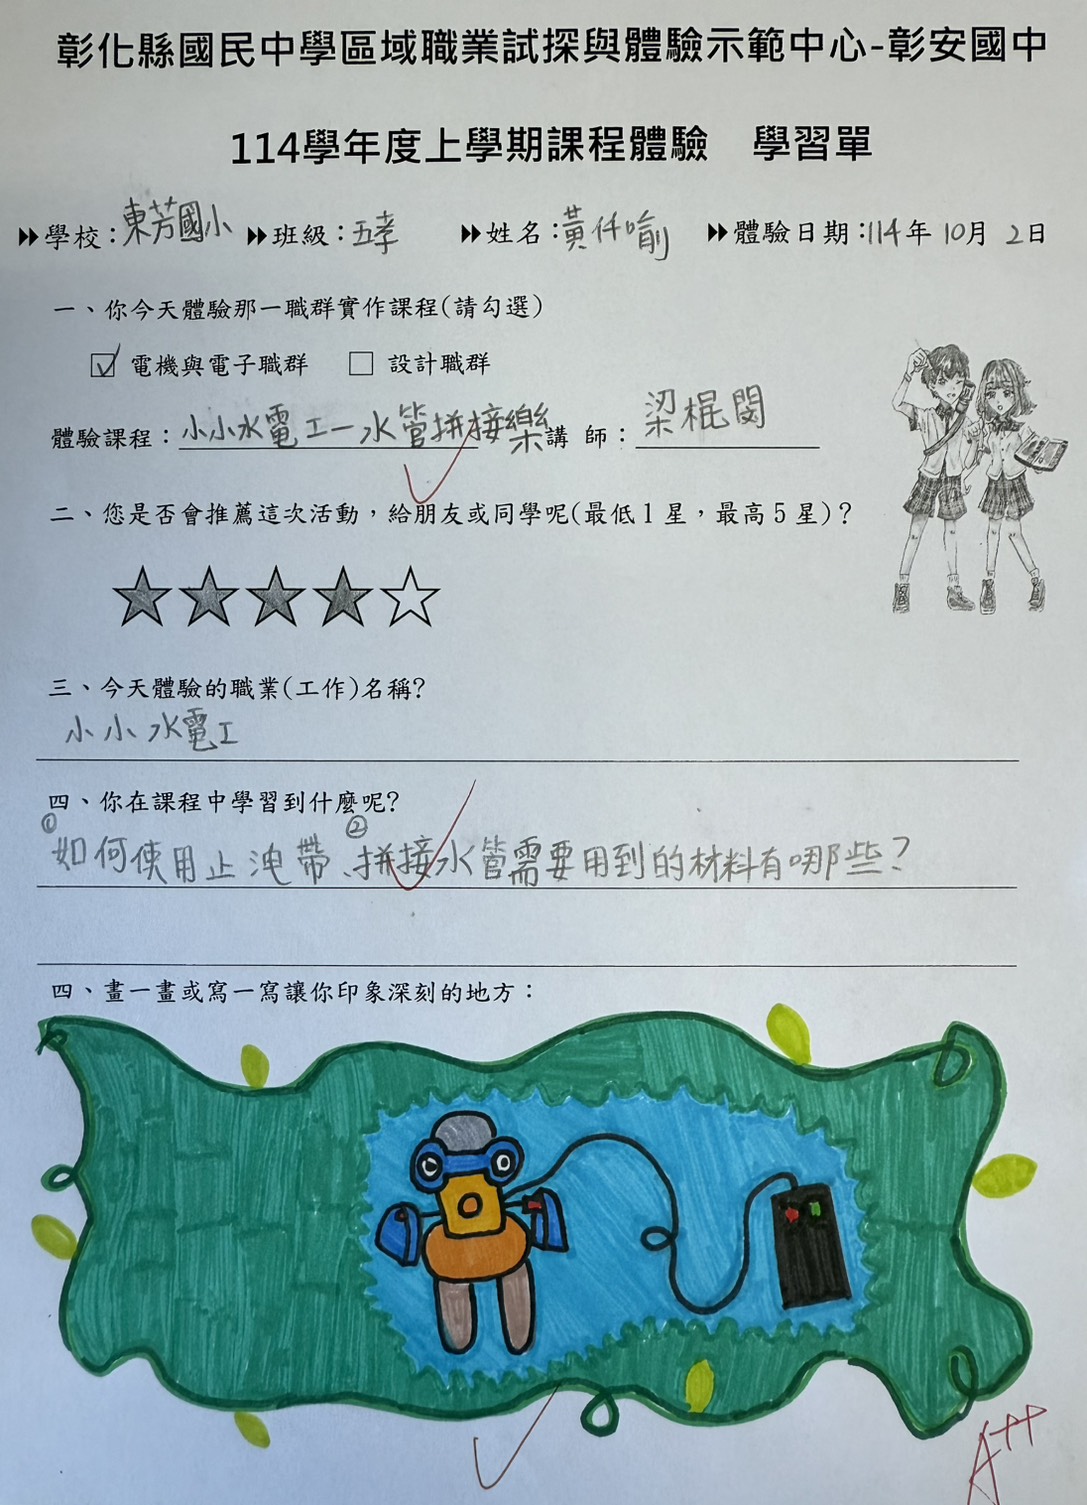 彰化縣國民中學區域職業試探與體驗示範中心-彰安國中
114學年度上學期課程體驗 學習單
學校：東芳國小 班級：五孝 姓名：黃仟喻 體驗日期：114年 10月 2日
一、你今天體驗那一職群實作課程(請勾選)
☑ 電機與電子職群 □ 設計職群
體驗課程：小小水電工—水管拼接樂 講 師：梁棍閔
二、您是否會推薦這次活動，給朋友或同學呢(最低1星，最高5星)？
三、今天體驗的職業(工作)名稱?
小小水電工
四、你在課程中學習到什麼呢?
①如何使用止洩帶、②拼接水管需要用到的材料有哪些?
四、畫一畫或寫一寫讓你印象深刻的地方：
A++